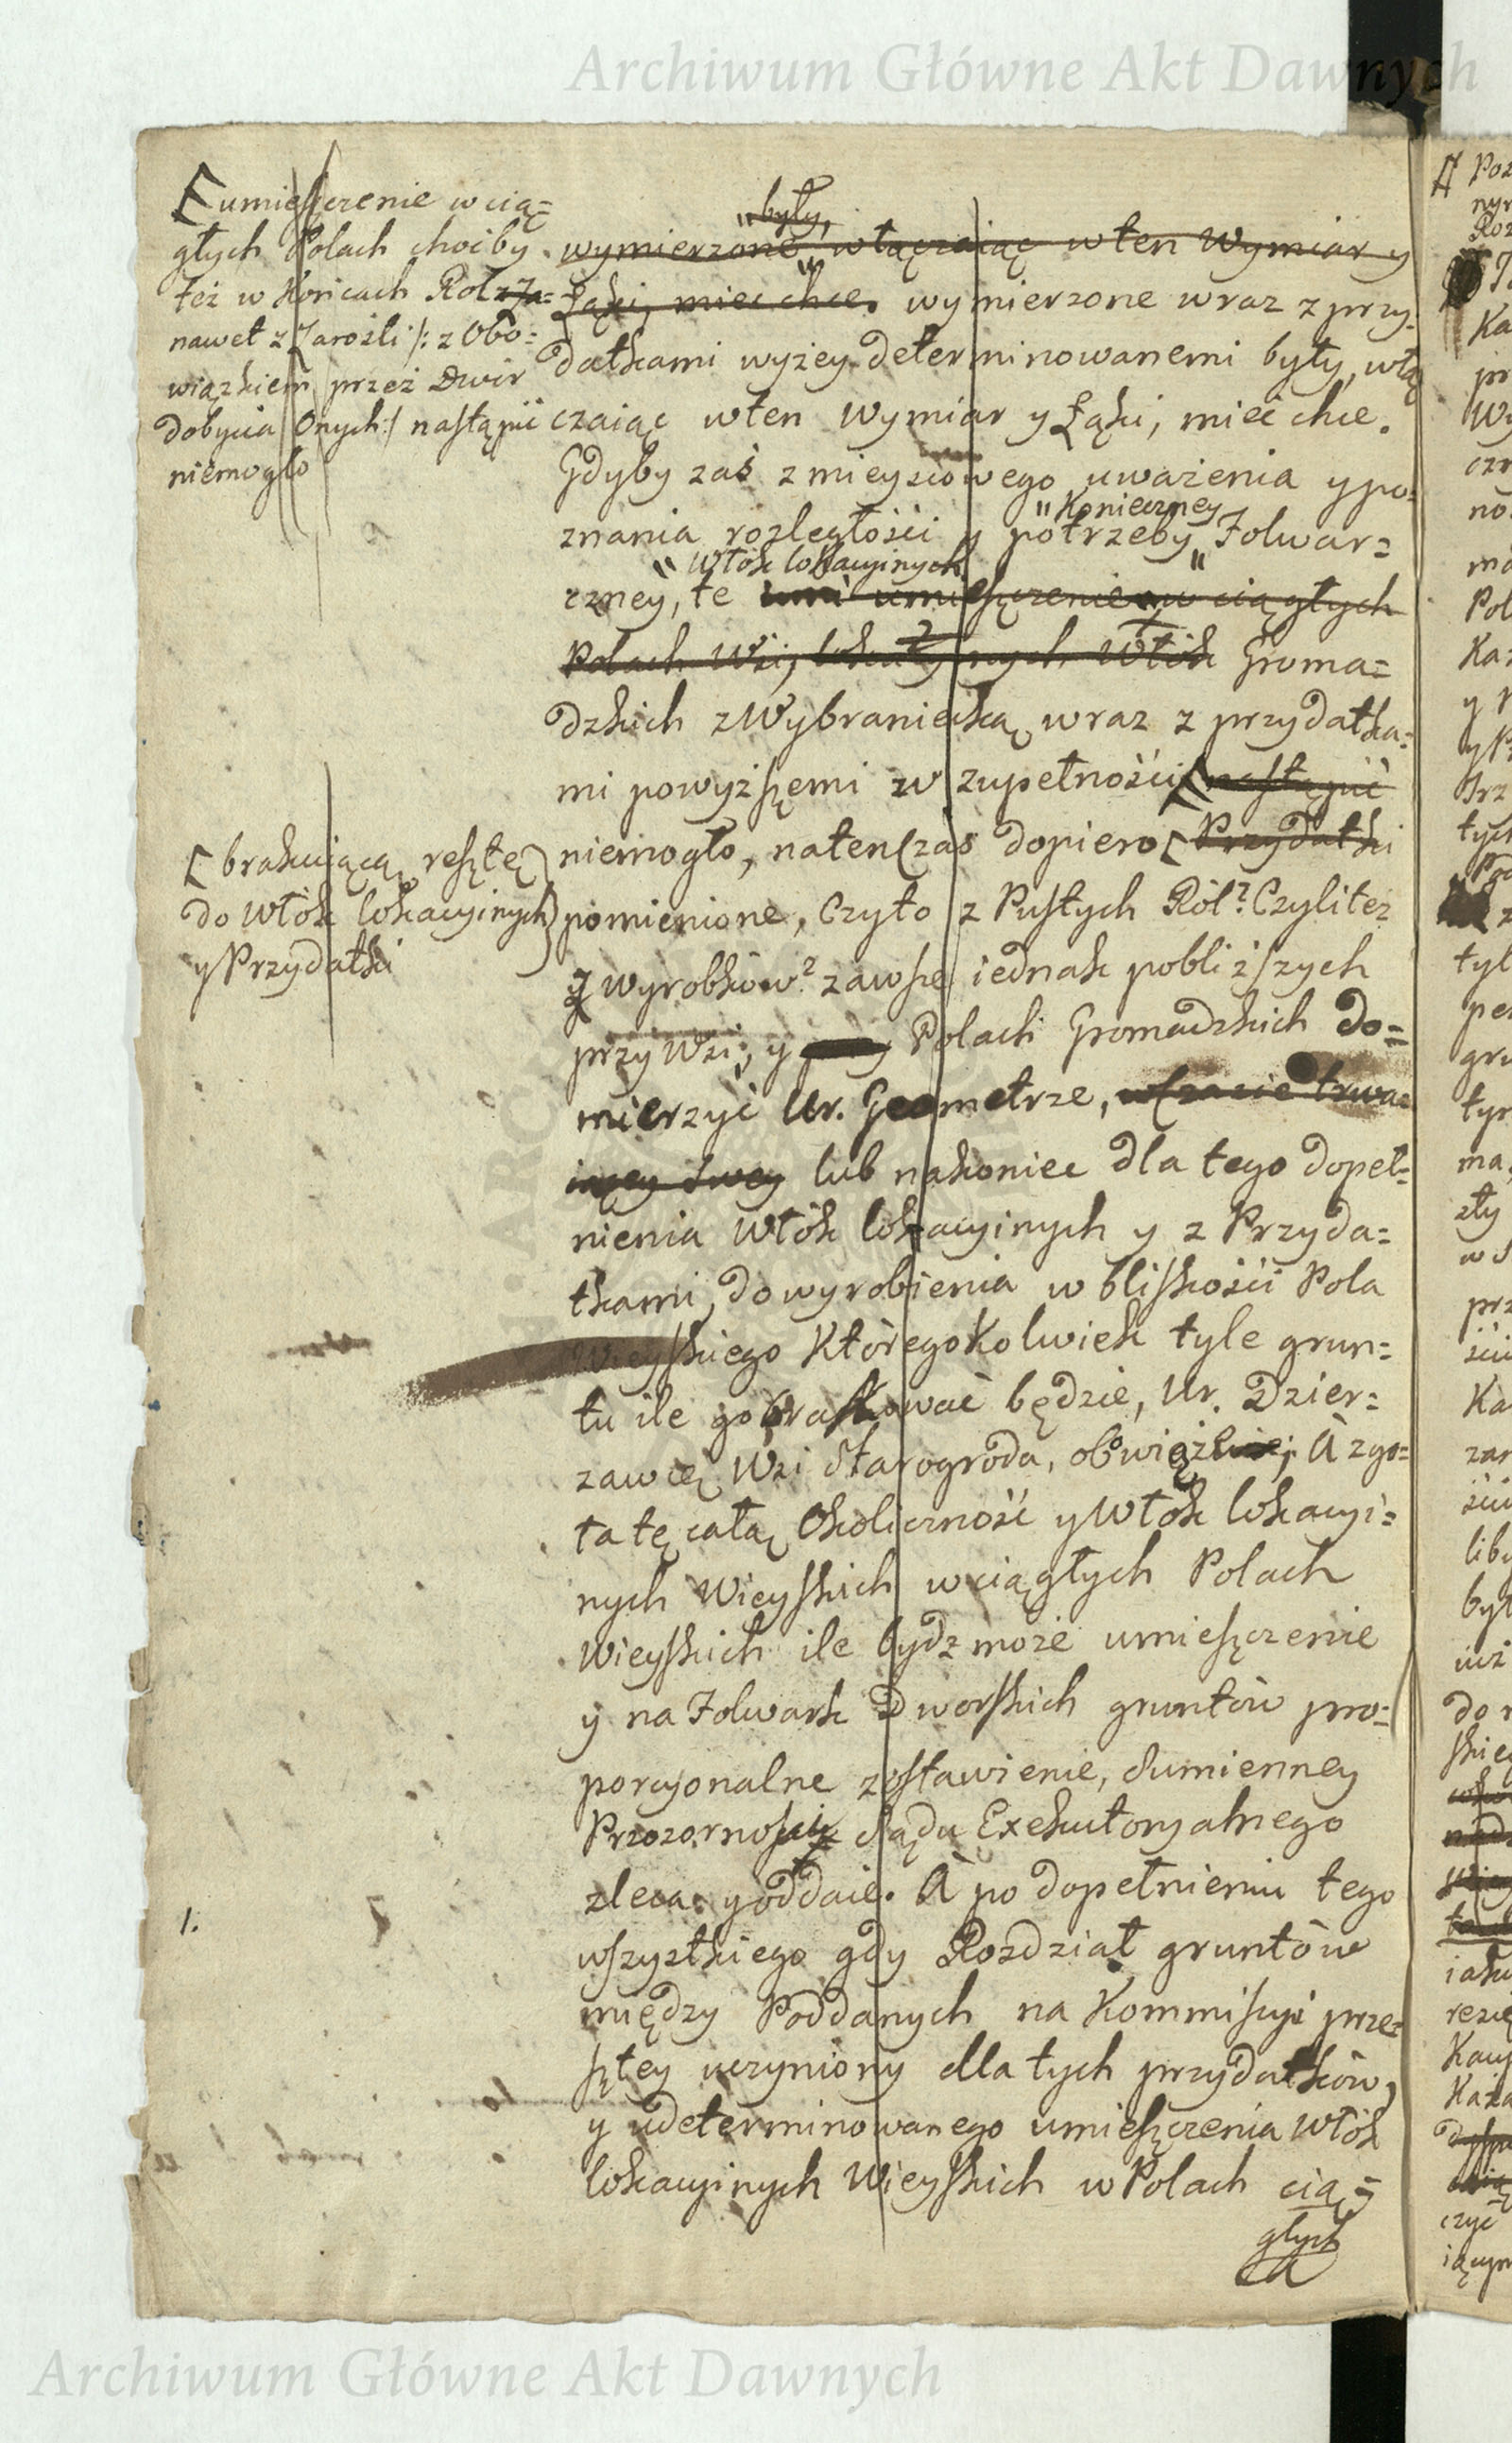 Archiwum Główne Akt Dawnych
umieſzczenie w cią=
głych Polach choćby
też w Końcach Rol z Za=
nawet z Zarośli /: z Obo=
wiązkiem przeż Dwór
dobycia Onych :/ naſtąpić
niemogło
"były,
wymierzone włączaiąc wten Wymiar y
Łąki, mieć chce. wymierzone wraz z przy=
datkami wyżey determinowanemi były, włą
czaiąc wten Wymiar y Łąki, mieć chce.
Gdyby zaś z mieyscowego uważenia y po=
"Konieczney
znania rozległości y potrzeby" Folwar=
"Włók lokacyinych
czney, te umieſzczenie w ciągłych
Polach Wsi, lokacyinych Włók Groma=
dzkich z Wybraniecką wraz z przydatka=
mi powyżſzemi w zupełności naſtąpić
niemogło, naten Czas dopiero Przydatki
[ brakuiącą reſztę
do Włók lokacyinych
y Przydatki
pomienione, Czyto z Puſtych Ról? Czyliteż
z wyrobków? zawſze iednak pobliżſzych
przy Wsi, y Polach Gromadzkich do=
mierzyć Ur. Geometrze, w Czasie trwa=
iącey swey lub nakoniec dla tego dopeł=
nienia Włók lokacyinych y z Przyda=
tkami, do wyrobienia w bliſkości Pola
Wieyſkiego Któregokolwiek tyle grun=
tu ile go brakować będzie, Ur. Dzier=
zawcę Wsi Starogroda, obowiąże; A zgo=
ta tę całą Okoliczność y Włók lokacyi=
nych Wieyſkich w ciągłych Polach
Wieyſkich ile bydz może umieſzczenie
y na Folwark Dworſkich gruntów pro=
porcyonalne zoſtawienie, Sumienney
Przezornoſci Sądu Exekutoryalnego
zleca y oddaie. A po dopełnieniu tego
1.
wſzyztkiego gdy Rozdział gruntów
między Poddanych na Kommiſsyi prze=
ſzłey uczyniony dla tych przydatków,
y udeterminowanego umieſzczenia Włók
lokacyinych Wieyſkich w Polach cią=
głych
Archiwum Główne Akt Dawnych